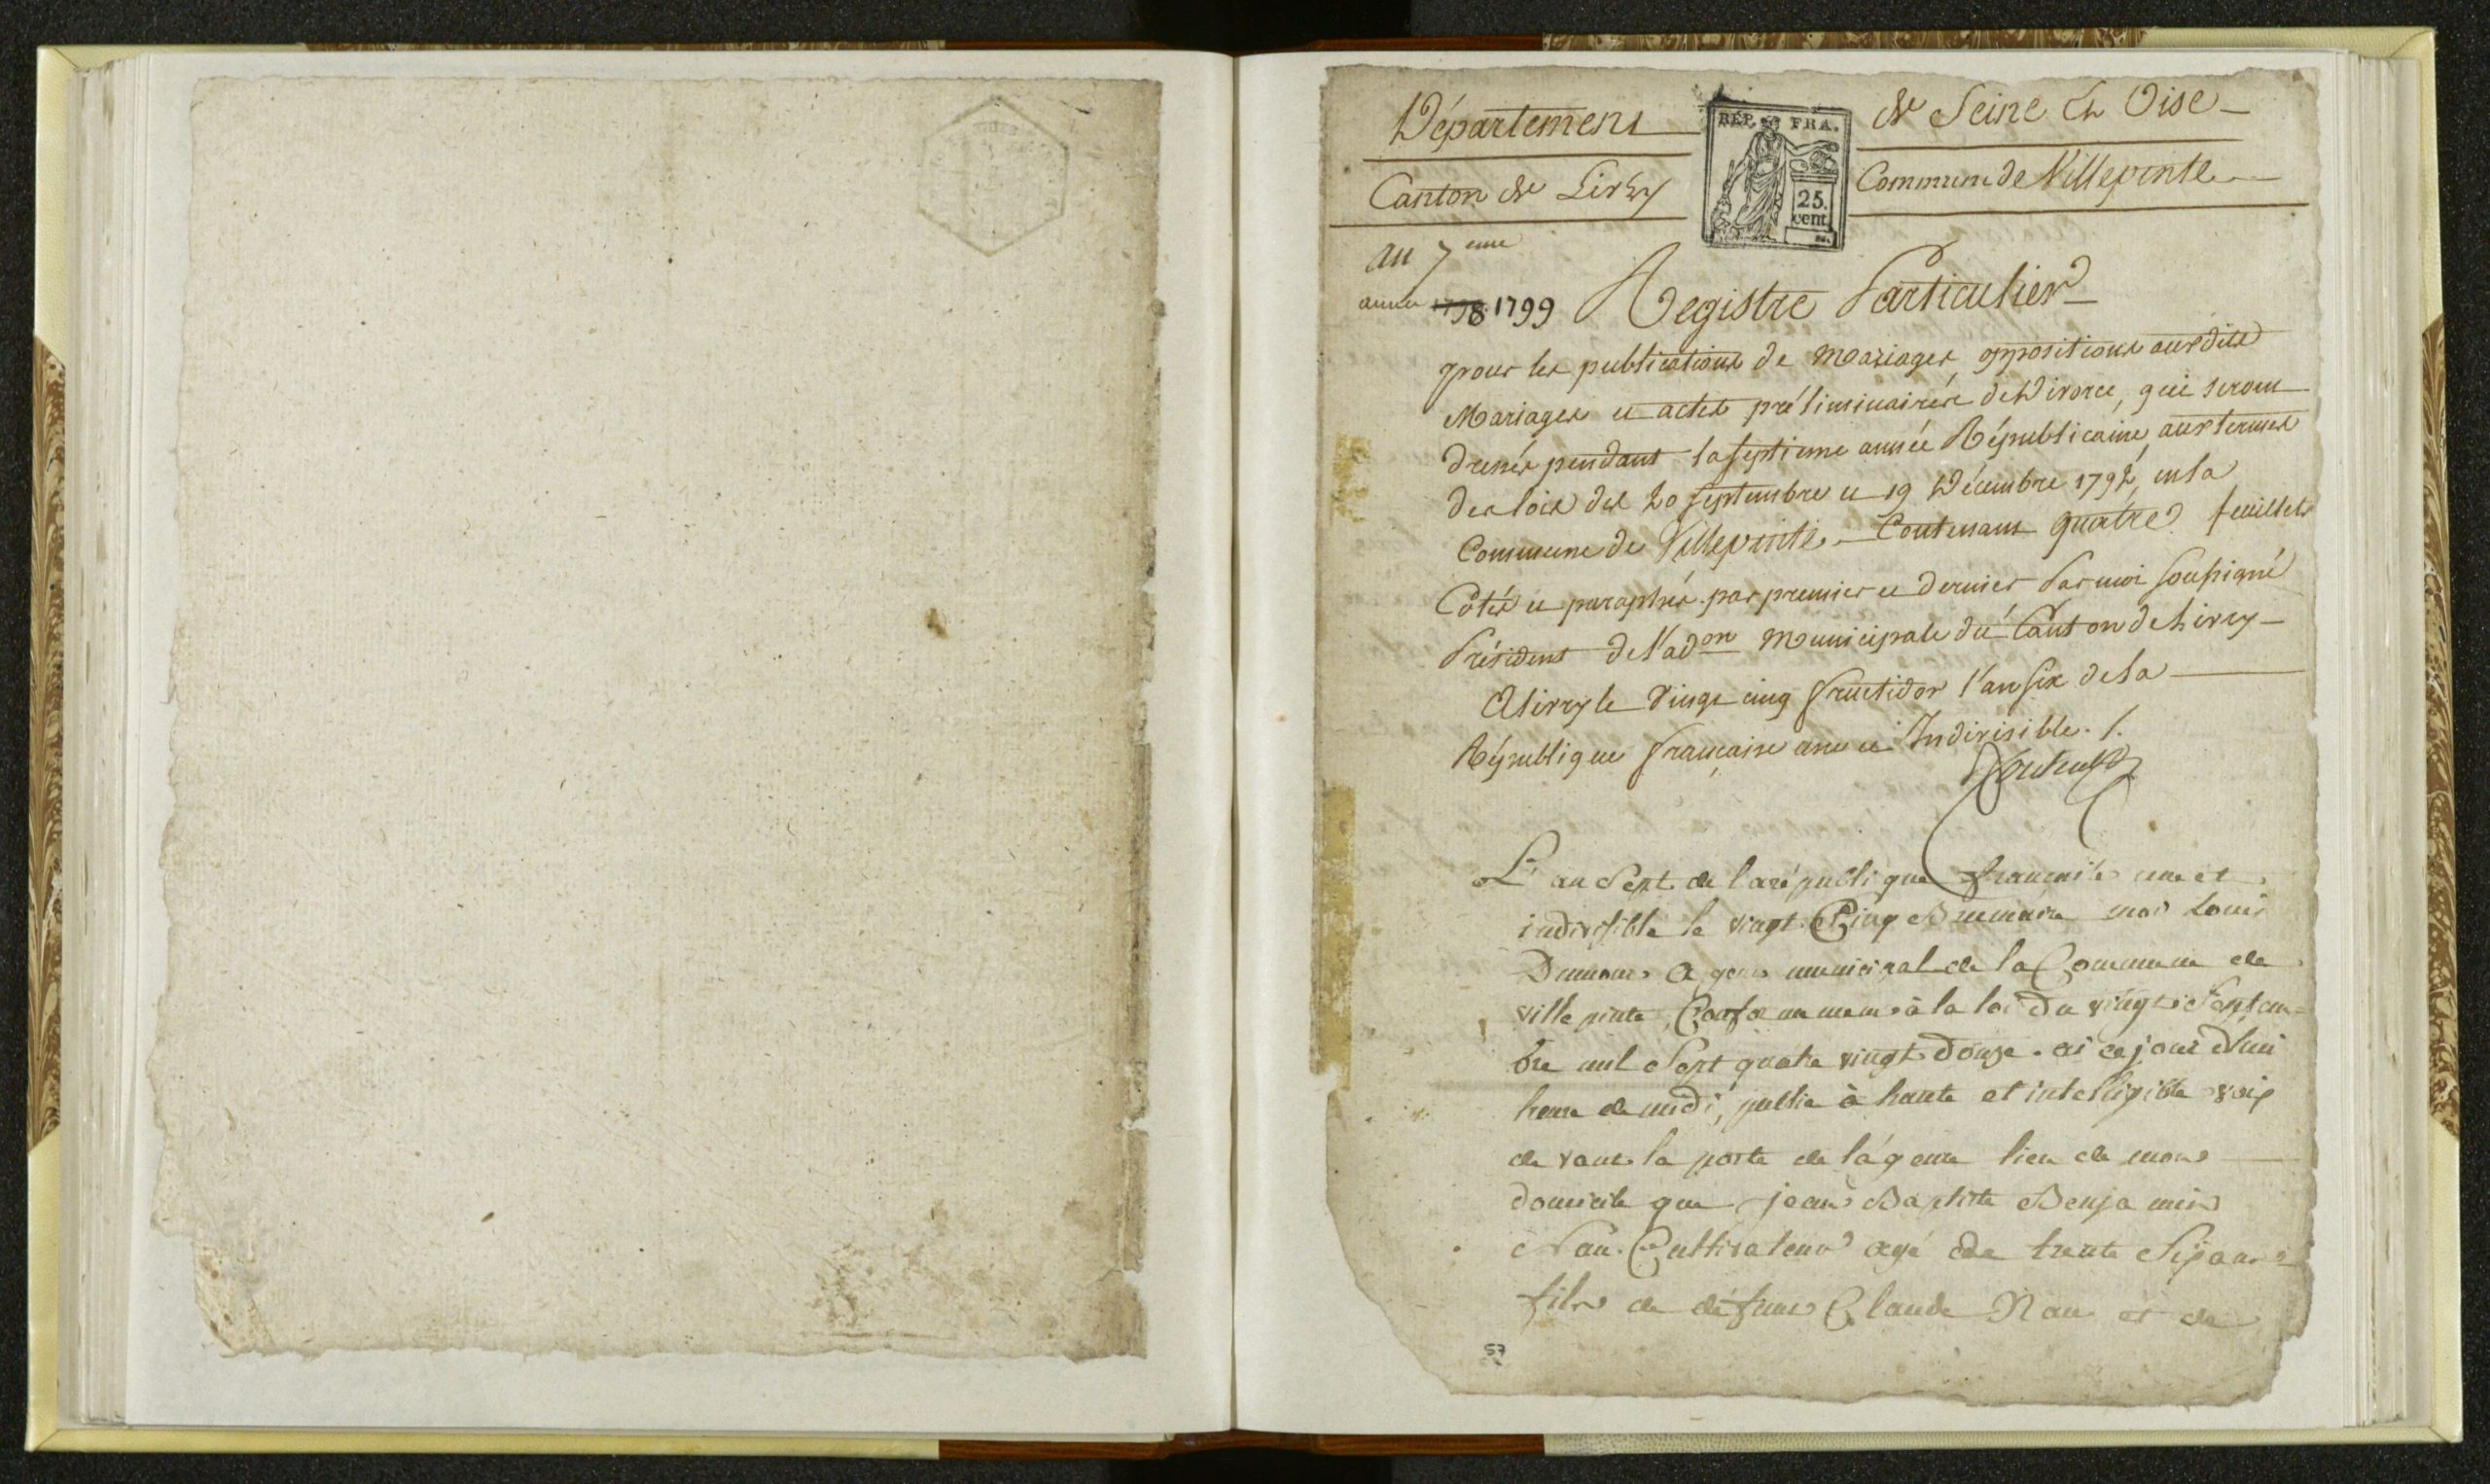 Département de Seine Et Oise
Canton de Livry Commune de Villepinte
RÉP. FRA.
25.
cent.
an 7eme
année 1798 1799 Registre Particulier
pour les publications de Mariages, oppositions auxdits
Mariages et actes préliminaires de Divorce, qui seront
dressés pendant la septieme année Républicaine, aux termes
des loix des 20 septembre et 19 Décembre 1792, en la
Commune de Villepinte. Contenant quatre feuillets
Cotés et paraphés par premier et dernier Par moi soussigné
Président de l'adon Municipale du Canton de Livry
A Livry le Vingt cinq fructidor l'an six de la
République française une et Indivisible. /.
L'an Sept de la république francaise une et
indivisible le vingt Cinq Brumaire moi Louis
agent municipal de la Commune de
ville pinte, Conformement à la loi du vingt Septem=
bre mil Sept quatre vingt douze. ai ce jour d'hui
heure de midi, publié à haute et intelligible voix
devant la porte de l'ágence lieu de mon
domicile que jean Baptiste Benjamin
Nau Cultivateur agé de trente Six ans
fils de défunt Claude Nau et de
57